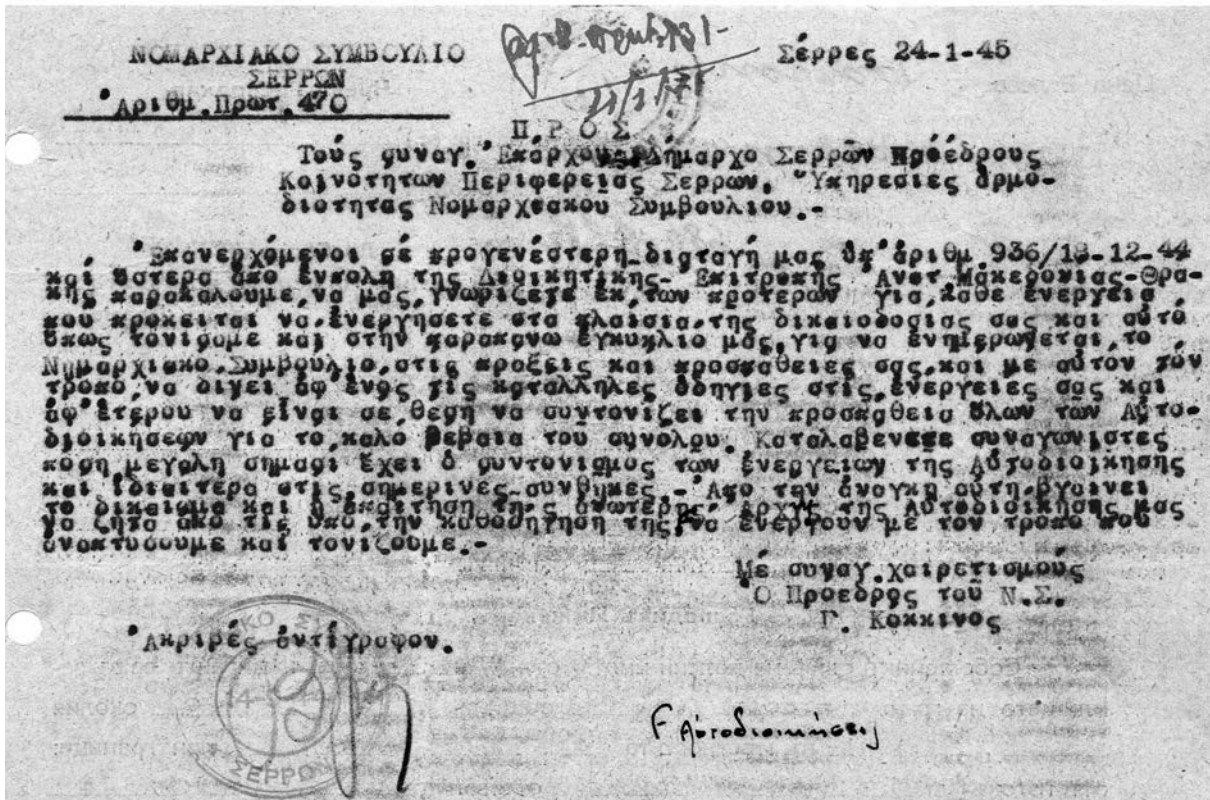 ΝΟΜΑΡΧΙΑΚΟ ΣΥΜΒΟΥΛΙΟ
ΣΕΡΡΩΝ
Ἀριθμ.Πρωτ.470
Σέρρες 24-1-45
Π Ρ Ο Σ
Τούς συναγ. Ἐπάρχους Δήμαρχο Σερρῶν Προέδρους
Κοινοτητων Περιφερειας Σερρων, Ὑπηρεσιες ἁρμο-
διοτητας Νομαρχιακοῦ Συμβουλιου.-
Ἐπανερχόμενοι σέ προγενέστερη διαταγή μας ὑπ' ἀριθμ.936/18-12-44
καί ὕστερα ἀπο ἐντολη της Διοικητικης- Ἐπιτροπης Ἀνατ.Μακεδονιας-Θρα-
κης παρακαλουμε,να μας,γνωριζετε ἐκ,των προτερων για,καθε ἐνεργεια
που προκειται να,ἐνεργησετε στα πλαισια,της δικαιοδοσιας σας και αὐτό
ὅπως τονιζομε και στην παραπανω ἐγκυκλιο μας,για να ἐνημερωνεται,το
Νομαρχιακο,Συμβουλιο,στις πραξεις και προσπαθειες σας,και με αὐτον τόν
τροπο,να διγει ἀφ'ἑνος τις καταλληλες ὁδηγιες στις,ἐνεργειες σας και
ἀφ'ἑτερου να εἶναι σε,θεση να συντονιζει την προσπαθεια ὅλων τῶν Αὐτο-
διοικησεων για το,καλο βεβαια τοῦ συνολου. Καταλαβενετε συναγωνιστες
ποση μεγαλη σημασι ἔχει ὁ συντονισμος τῶν ἐνεργειων της Αὐτοδιοικησης
και ἰδιαιτερα στις,σημερινες-συνθηκες.- Ἀπο την ἀναγκη αὐτη,βγαινει
το δικαιωμα και ἡ ἀπαιτηση της ἀνωτερης Ἀρχης της Αὐτοδιοικησης μας
να ζητα ἀπο τις ὑπο,την καθοδηγηση της,να ἐνεργουν με τον τροπο που
ἀναπτυσουμε και τονιζουμε.-
Μέ συναγ.χαιρετισμούς
Ὁ Προεδρος τοῦ Ν.Σ.
Γ. Κοκκινος
Ἀκριβές ἀντίγραφον.
ΣΕΡΡΩΝ
Γ Αὐτοδιοικήσεις